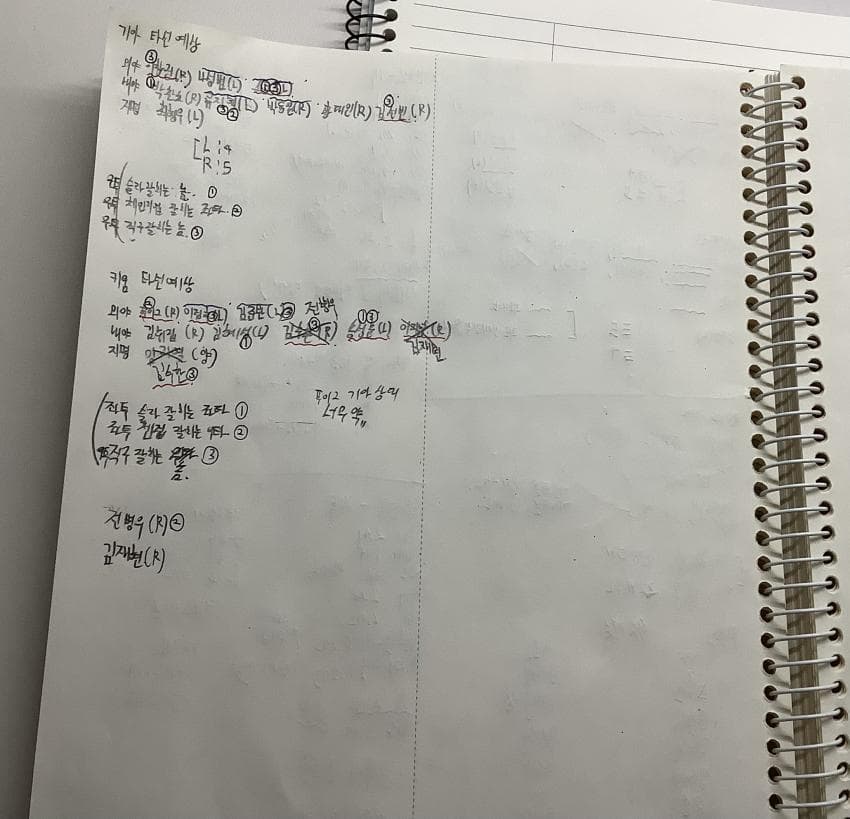 기아 타선 예상
외야 ③ 이창진(R) 나성범(L) ①③L)
내야 ① 박찬호(R) 류지혁(L) 박동원(R) 황대인(R) ③ 김선빈(R)
지명 최형우(L) ③②
[L : 4
R : 5
슬라 잘치는 놈. ①
체인지업 잘 치는 좌타. ②
우투 직구 잘치는 놈. ③
키움 타선 예상
외야 ② 푸이그(R) 이정후③L) 김준완(L)③ 전병우
내야 김휘집(R) 김혜성(L) ① ③ R) ①③ 송성문(L) (R)
지명 (양) 김재현
김수환③
좌투 슬라 잘 치는 좌타 ①
좌투 잘 치는 우타 ②
직구 잘 치는 ③
놈.
푸이그 기아 상대
너무 약
전병우(R)②
김재현(R)